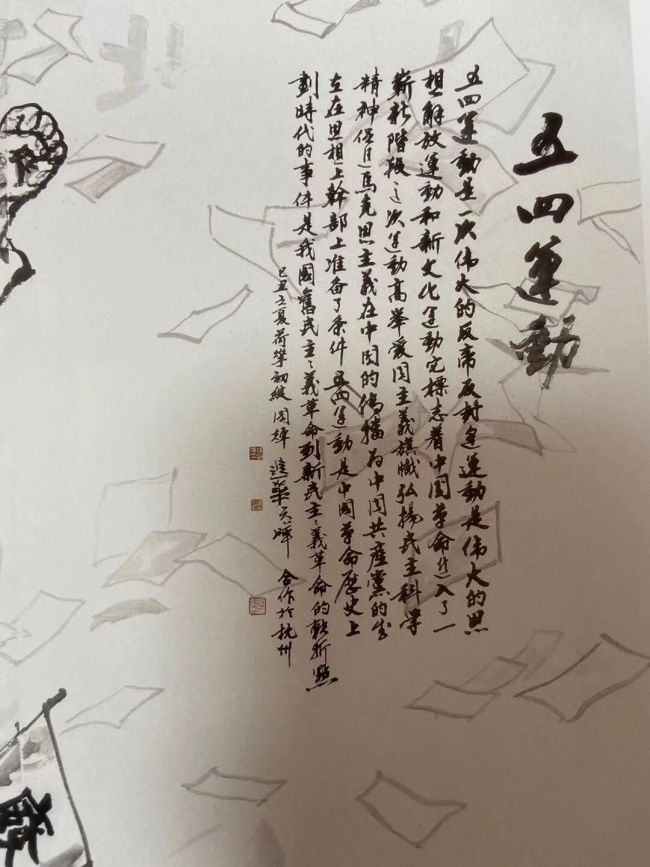 五四運動
五四運動是一次伟大的反帝反封建運動是伟大的思
想解放運動和新文化運動它標志着中国革命进入了一
嶄新階段这次運動高举爱国主義旗幟弘揚民主科学
精神促进馬克思主義在中国的傳播为中国共產黨的
立在思想上幹部上准备了条件 五四運動是中國革命歷史上
劃時代的事件是我國舊民主主義革命到新民主主義革命的轉折點
己丑之夏荷初綻 進華 合作於杭州